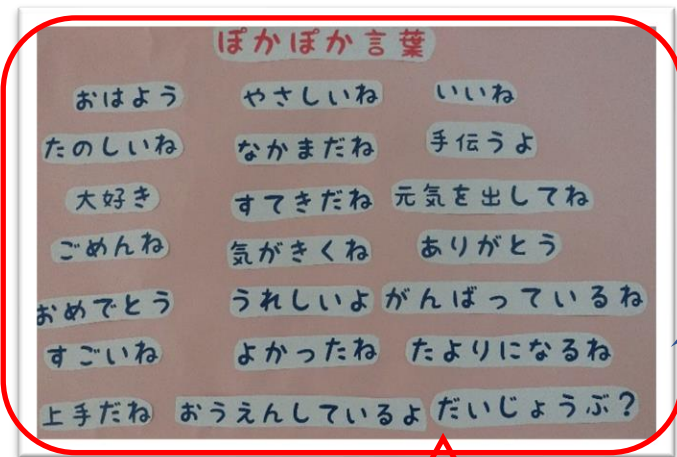 ぽかぽか言葉
おはよう やさしいね いいね
たのしいね なかまだね 手伝うよ
大好き すてきだね 元気を出してね
ごめんね 気がきくね ありがとう
おめでとう うれしいよ がんばっているね
すごいね よかったね たよりになるね
上手だね おうえんしているよ だいじょうぶ?